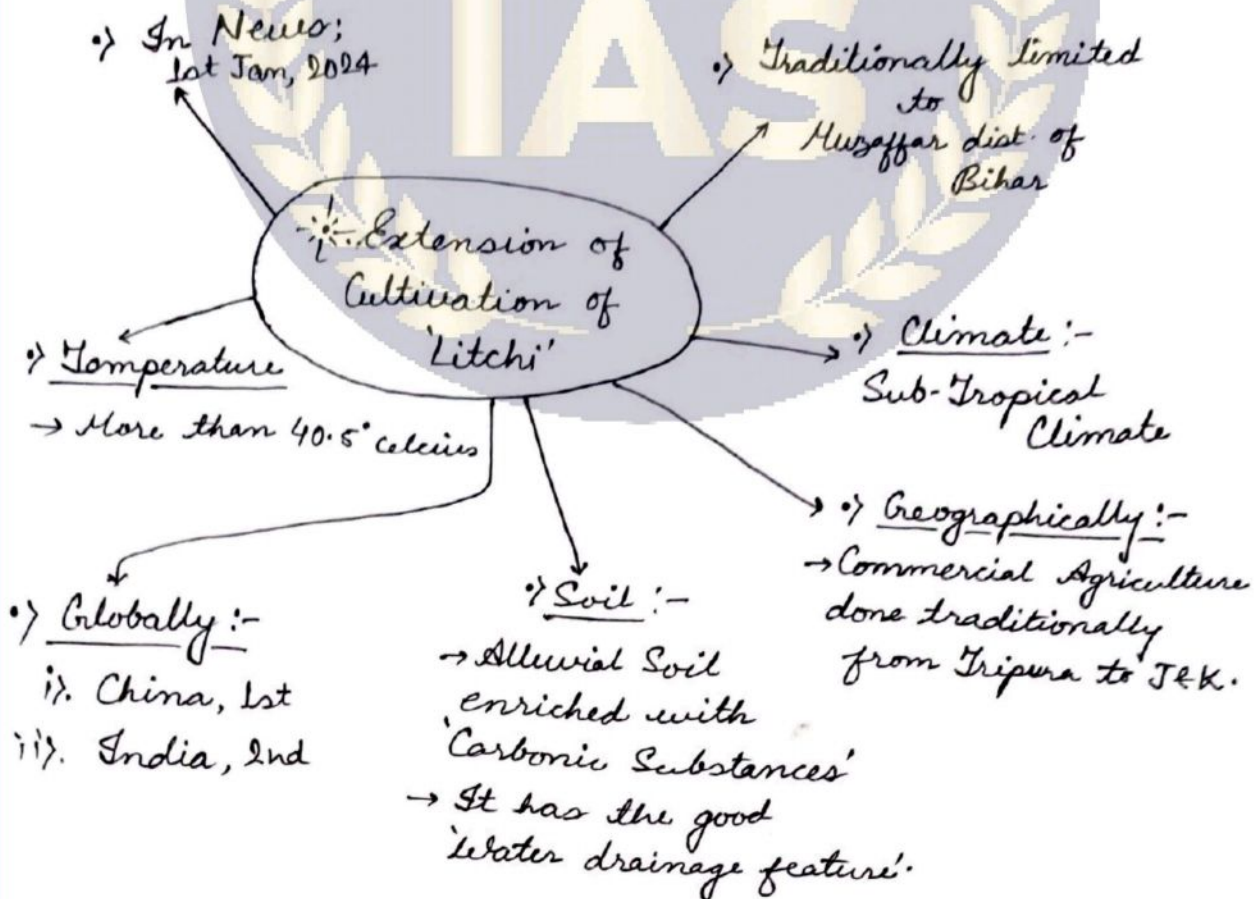 IAS
•> In News;
1st Jan, 2024
•> Traditionally limited
to
Muzaffar dist. of
Bihar
Extension of
Cultivation of
'Litchi'
•> Temperature
→ More than 40.5° celcius
•> Climate :-
Sub-Tropical
Climate
•> Geographically :-
→ Commercial Agriculture
done traditionally
from Tripura to J&K.
•> Globally :-
i). China, 1st
ii). India, 2nd
•> Soil :-
→ Alluvial Soil
enriched with
'Carbonic Substances'
→ It has the good
'Water drainage feature'.